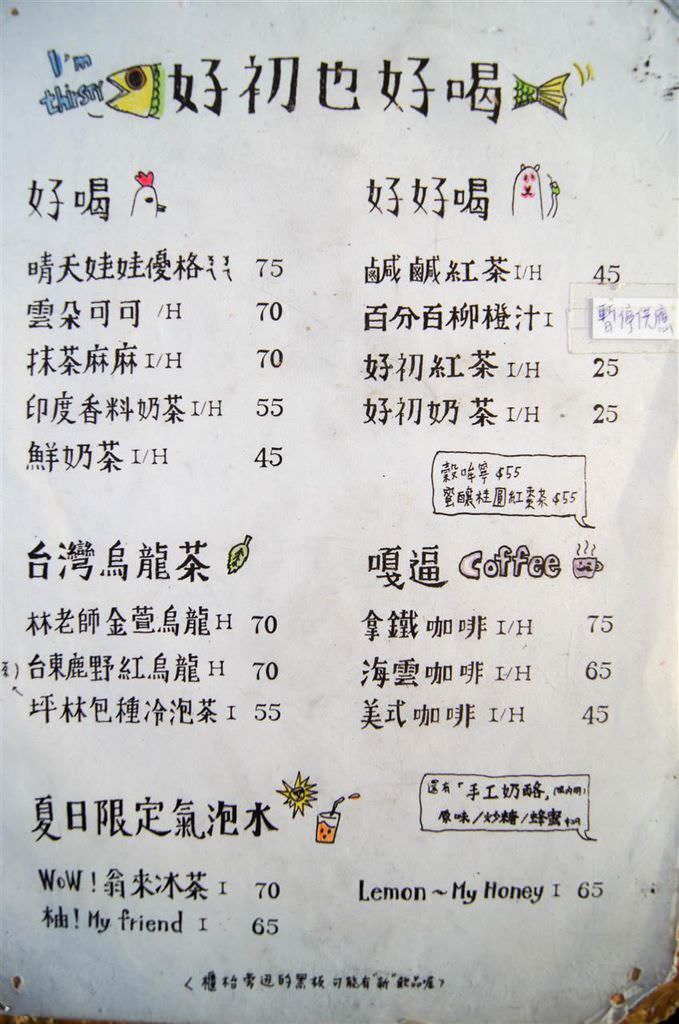 I'm thirsty
好初也好喝
好喝
晴天娃娃優格 75
雲朵可可 /H 70
抹茶麻麻 I/H 70
印度香料奶茶 I/H 55
鮮奶茶 I/H 45
好好喝
鹹鹹紅茶 I/H 45
百分百柳橙汁 I 暫停供應
好初紅茶 I/H 25
好初奶茶 I/H 25
穀哞寧 $55
蜜釀桂圓紅棗茶 $55
台灣烏龍茶
林老師金萱烏龍 H 70
台東鹿野紅烏龍 H 70
坪林包種冷泡茶 I 55
嘎逼 Coffee
拿鐵咖啡 I/H 75
海雲咖啡 I/H 65
美式咖啡 I/H 45
還有「手工奶酪」
原味/炒糖/蜂蜜
夏日限定氣泡水
WoW!翁來冰茶 I 70
柚! My friend I 65
Lemon~My Honey I 65
<櫃枱旁邊的黑板可能有"新"飲品喔>